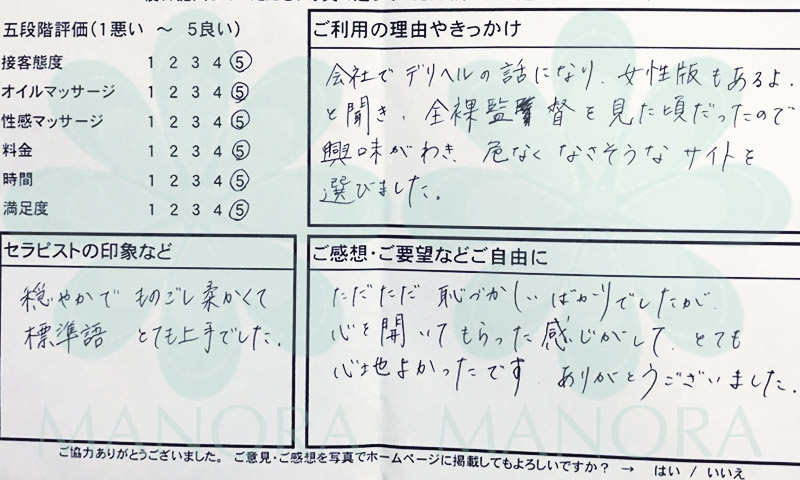 五段階評価(1悪い ～ 5良い)
接客態度 1 2 3 4 5
オイルマッサージ 1 2 3 4 5
性感マッサージ 1 2 3 4 5
料金 1 2 3 4 5
時間 1 2 3 4 5
満足度 1 2 3 4 5
ご利用の理由やきっかけ
会社でデリヘルの話になり、女性版もあるよ。
と聞き、全裸監督を見た頃だったので
興味がわき、危なくなさそうなサイトを
選びました。
セラピストの印象など
穏やかで ものごし柔かくて
標準語 とても上手でした。
ご感想・ご要望などご自由に
ただただ 恥づかしいばかりでしたが、
心を開いてもらった感じがして、とても
心地よかったです ありがとうございました。
MANORA MANORA
ご協力ありがとうございました。 ご意見・ご感想を写真でホームページに掲載してもよろしいですか？ → はい / いいえ